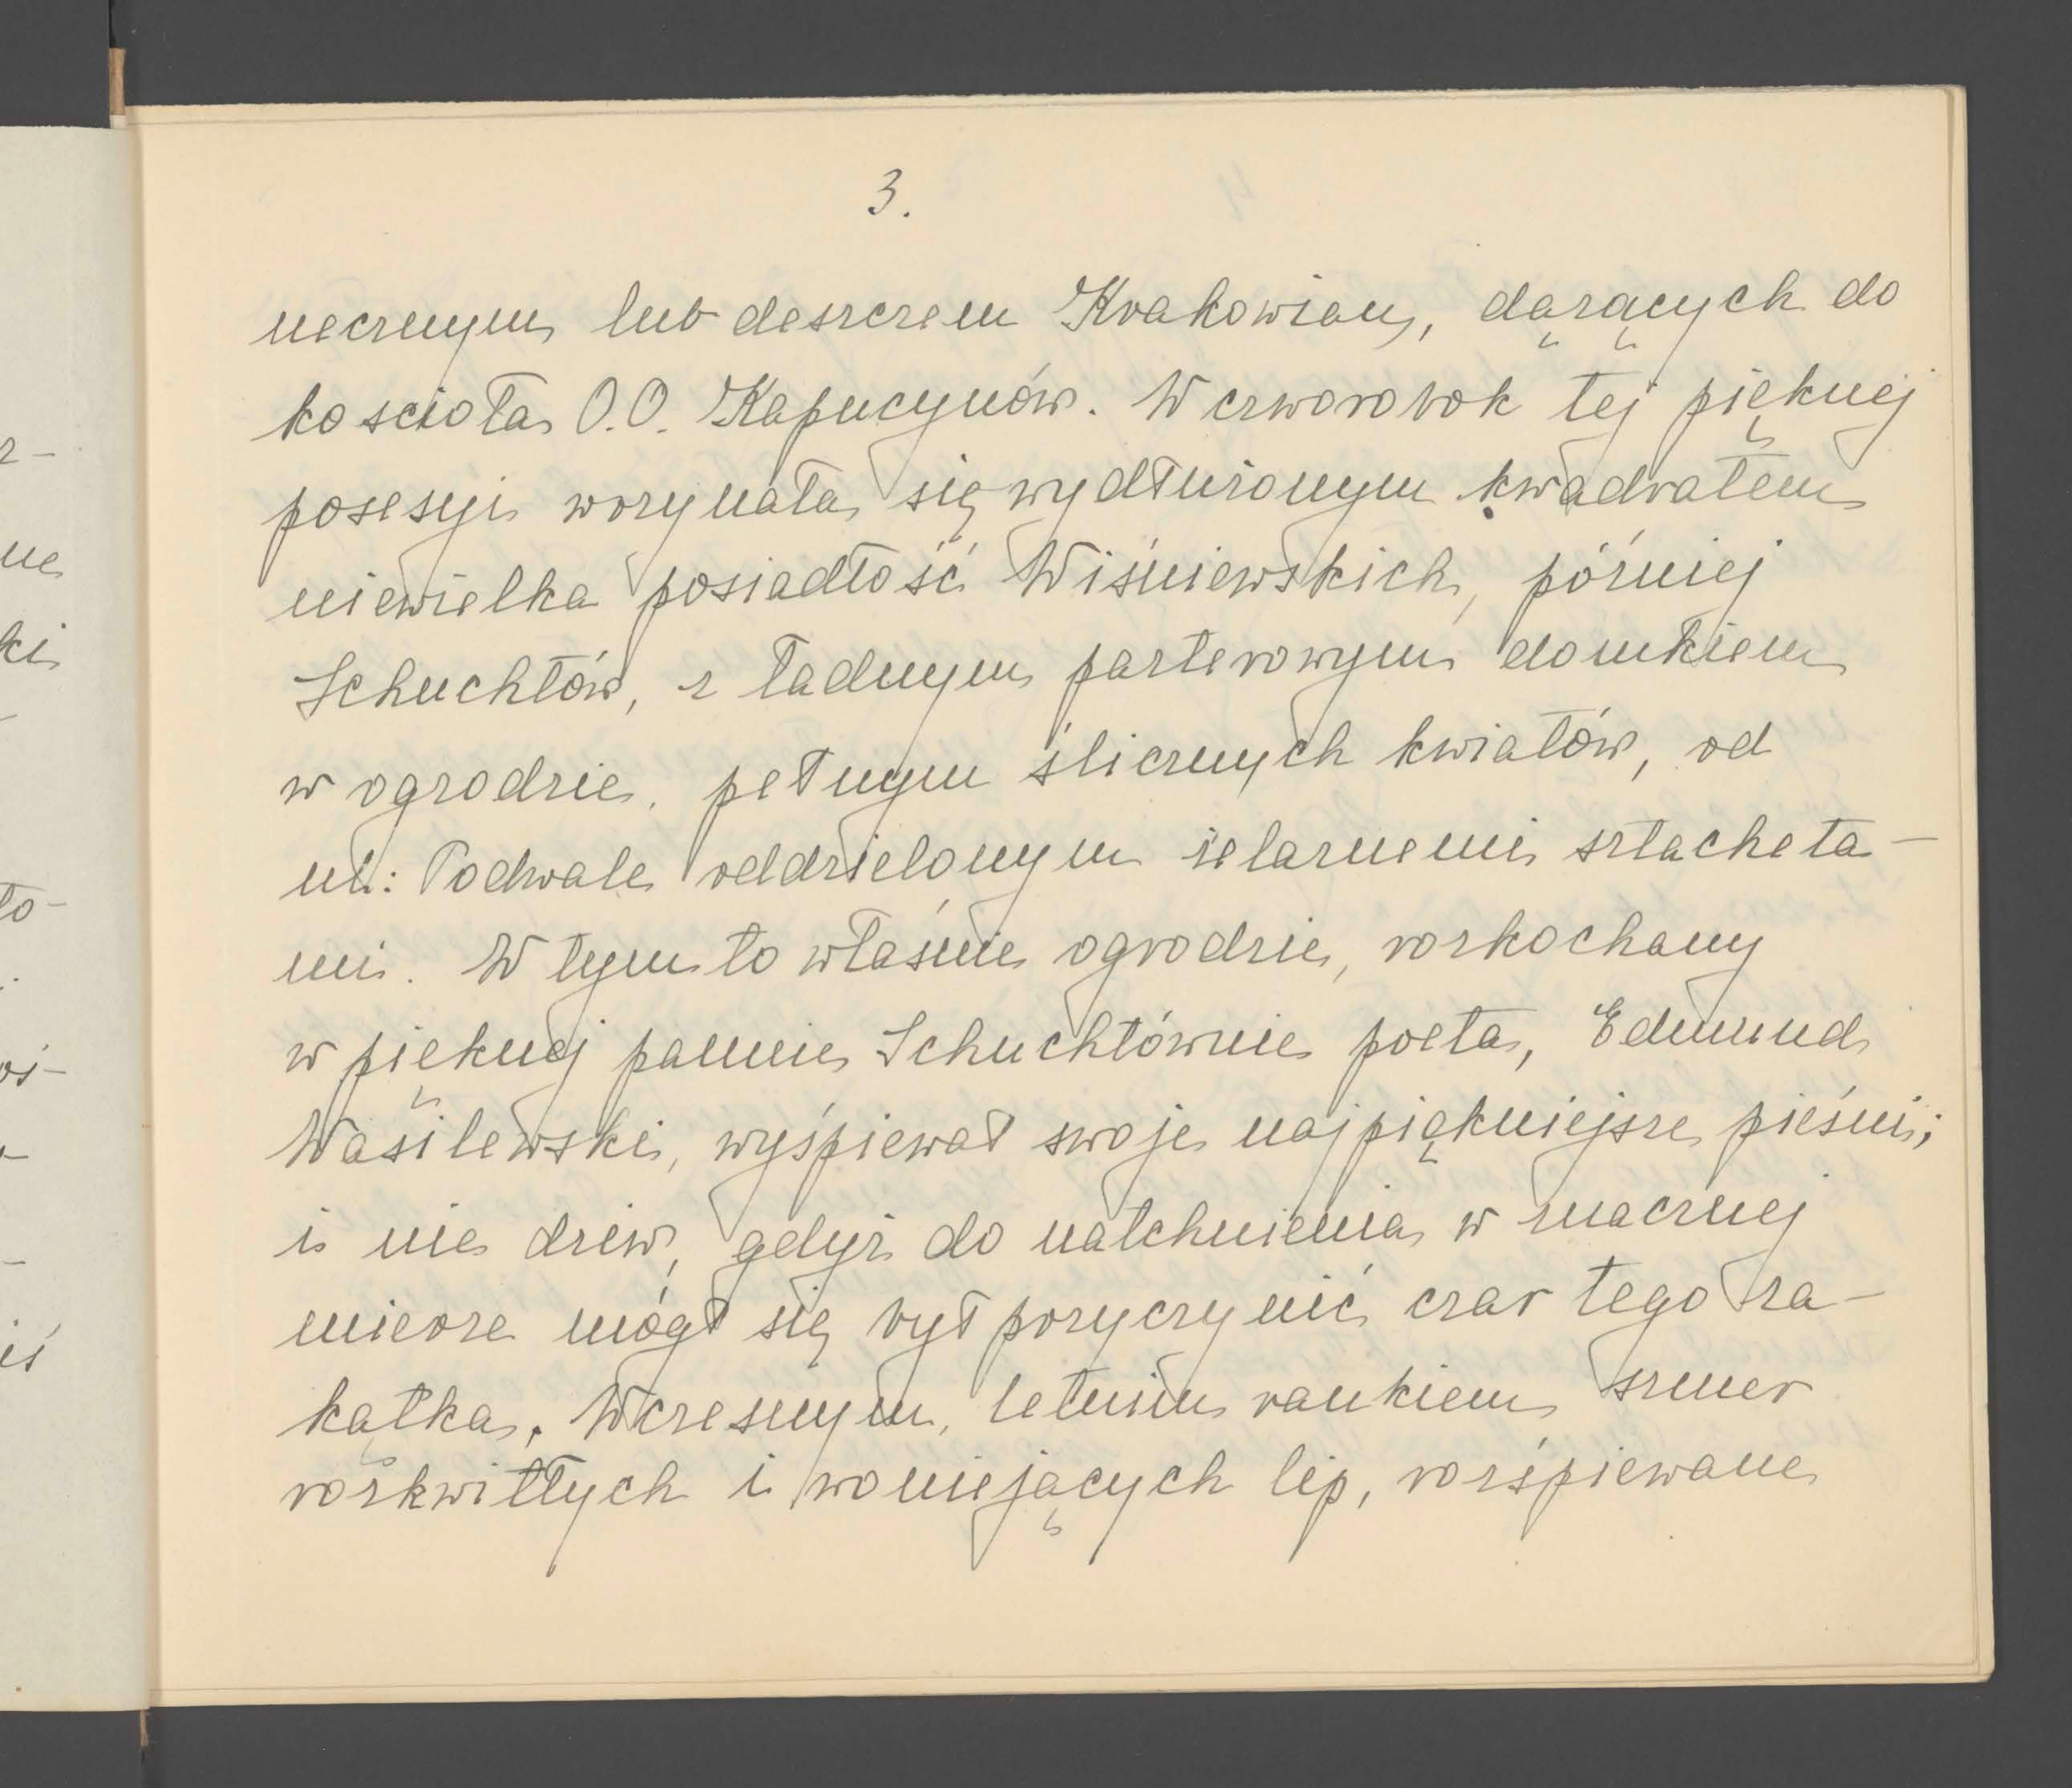 3.
necznym lub deszczem Krakowian, dążących do
kościoła O.O. Kapucynów. W czworobok tej pięknej
posesyi worzynała się wydłużonym kwadratem
niewielka posiadłość Wiśniewskich, później
Schuchtów, z ładnym parterowym domkiem
w ogrodzie, pełnym ślicznych kwiatów, od
ul: Podwale oddzielonym żelaznemi sztacheta-
mi. W tym to właśnie ogrodzie, rozkochany
w pięknej pannie Schuchtównie poeta, Edmund
Wasilewski, wyśpiewał swoje najpiękniejsze pieśni;
i nie dziw, gdyż do natchnienia w znacznej
mierze mógł się był przyczynić czar tego za-
kątka. Wczesnym, letnim rankiem szmer
rozkwitłych i woniejących lip, rozśpiewane